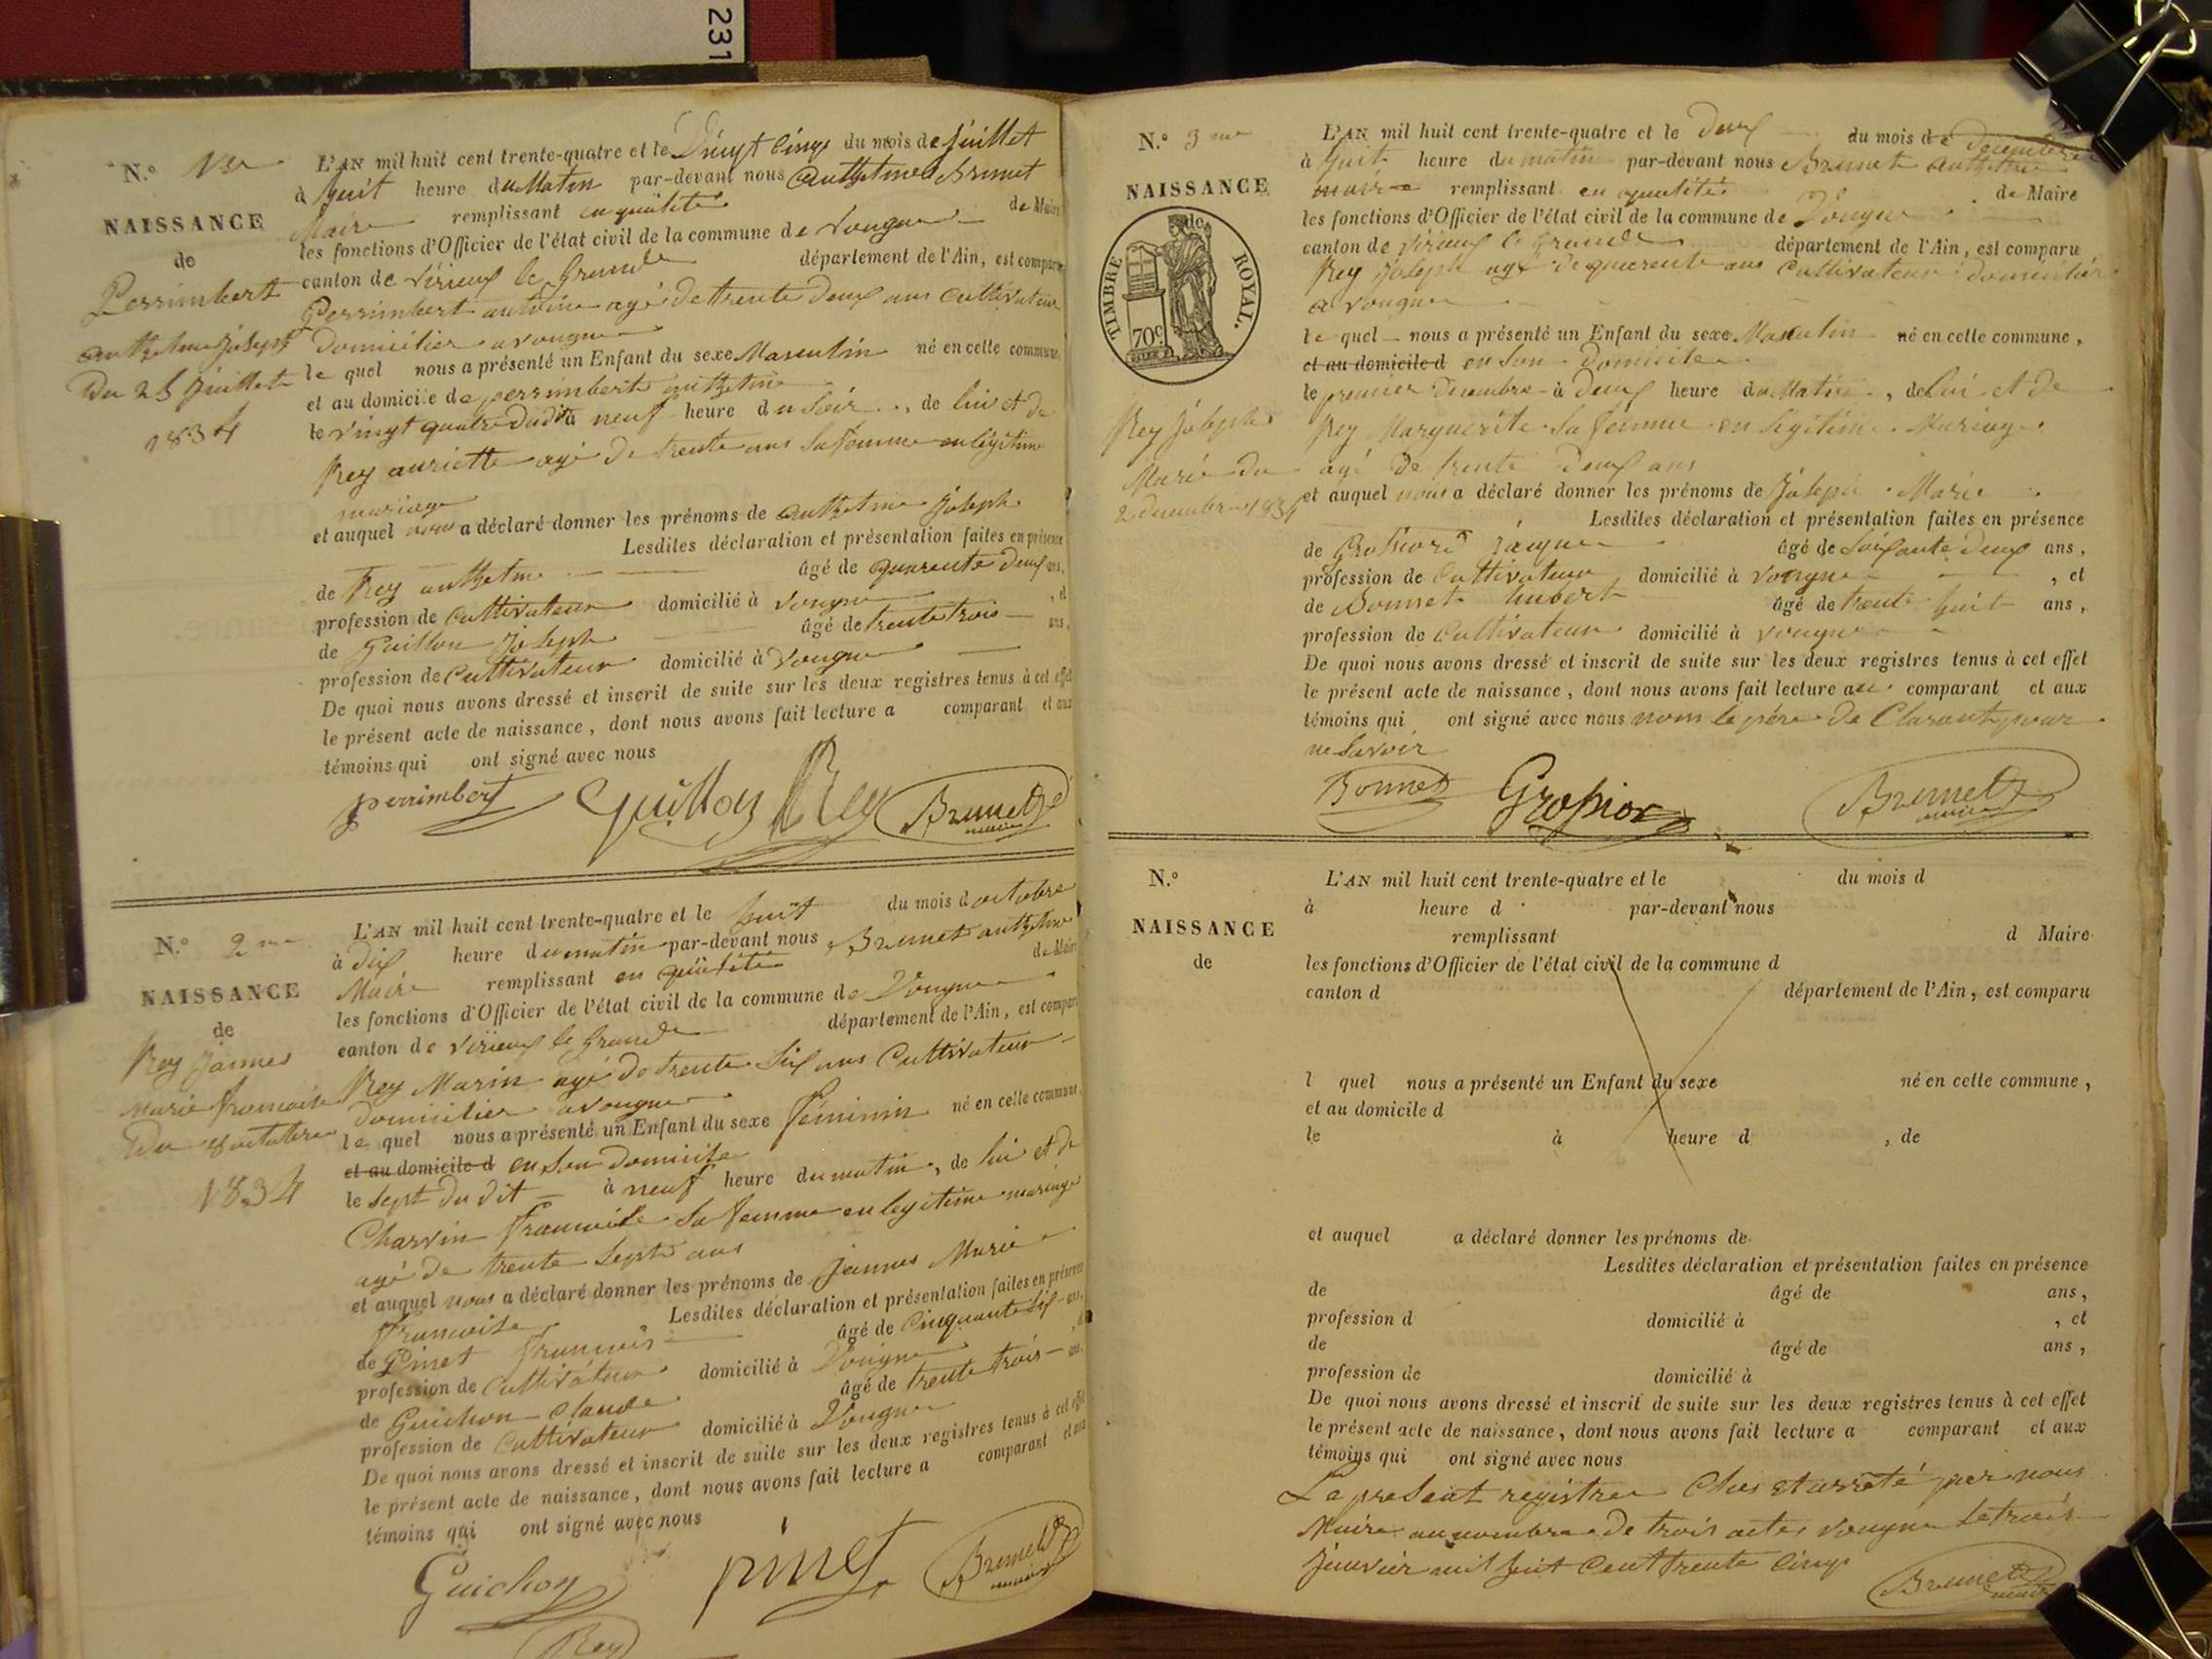 231
N.º 1er
NAISSANCE
de
Perrimbert
anthelme joseph
Du 25 juillet
1834
L'AN mil huit cent trente-quatre et le Vingt Cinq du mois de juillet
à huit heure du Matin par-devant nous Anthelme Brunet
Maire remplissant en qualité de Maire
les fonctions d'Officier de l'état civil de la commune de Vongne
canton de Virieux le Grand département de l'Ain, est comparu
Perrimbert antoine agé de trente deux ans cultivateur
domicilier a vongne
le quel nous a présenté un Enfant du sexe Masculin né en celle commune,
et au domicile de perrimbert anthelme
le vingt quatre dudit à neuf heure du soir, de lui et de
Rey auriette agé de trente ans sa femme en légitime
mariage
et auquel nous a déclaré donner les prénoms de anthelme joseph
Lesdites déclaration et présentation faites en présence
de Rey anthelme âgé de quarente deux ans,
profession de cultivateur domicilié à vongne, et
de Guillon joseph âgé de trente trois ans,
profession de cultivateur domicilié à Vongne
De quoi nous avons dressé et inscrit de suite sur les deux registres tenus à cet effet
le présent acte de naissance, dont nous avons fait lecture a comparant et aux
témoins qui ont signé avec nous
perrimbert Guillon Rey Brunet
maire
N.º 2me
NAISSANCE
de
Rey jannes
marie francoise
Du 8 octobre
1834
L'AN mil huit cent trente-quatre et le huit du mois d octobre
à dix heure du matin par-devant nous Brunet anthelme
Maire remplissant en qualité de Maire
les fonctions d'Officier de l'état civil de la commune de Vongne
canton de virieux le Grand département de l'Ain, est comparu
Rey Marin agé de trente six ans Cultivateur
domicilier a vongne
le quel nous a présenté un Enfant du sexe féminin né en celle commune,
et au domicile d en son domicile
le sept du dit à neuf heure du matin, de lui et de
Charvin francoise sa femme en legitime mariage
agé de trente sept ans
et auquel nous a déclaré donner les prénoms de jannes Marie
francoise Lesdites déclaration et présentation faites en présence
de Pinet francois âgé de Cinquante six ans,
profession de cultivateur domicilié à Vongne
de Guichon claude âgé de trente trois ans,
profession de cultivateur domicilié à Vongne
De quoi nous avons dressé et inscrit de suite sur les deux registres tenus à cet effet
le présent acte de naissance, dont nous avons fait lecture a comparant et aux
témoins qui ont signé avec nous
Guichon pinet Brunet
maire
Rey
N.º 3me
NAISSANCE
de
TIMBRE ROYAL.
70c
Rey joseph
Marie du
2 decembre 1834
L'AN mil huit cent trente-quatre et le deux du mois de decembre
à huit heure du matin par-devant nous Brunet anthelme
maire remplissant en qualité de Maire
les fonctions d'Officier de l'état civil de la commune de Vongne
canton de virieux le Grand département de l'Ain, est comparu
Rey joseph agé de quarente ans cultivateur domicilier
a vongne
le quel nous a présenté un Enfant du sexe Masculin né en celle commune,
et au domicile d en son domicile
le premier decembre à deux heure du Matin, de lui et de
Rey Marguerite sa femme en légitime Mariage
agé de trente deux ans
et auquel nous a déclaré donner les prénoms de joseph Marie
Lesdites déclaration et présentation faites en présence
de âgé de soixante deux ans,
profession de cultivateur domicilié à vongne, et
de Bonnet hubert âgé de trente huit ans,
profession de cultivateur domicilié à vongne
De quoi nous avons dressé et inscrit de suite sur les deux registres tenus à cet effet
le présent acte de naissance, dont nous avons fait lecture au comparant et aux
témoins qui ont signé avec nous nom le pére de Clarant pour
ne savoir
Bonnet Grossior Brunet
maire
N.º
NAISSANCE
de
L'AN mil huit cent trente-quatre et le du mois d
à heure d par-devant nous
remplissant d Maire
les fonctions d'Officier de l'état civil de la commune d
canton d département de l'Ain, est comparu
l quel nous a présenté un Enfant du sexe né en celle commune,
et au domicile d
le à heure d, de
et auquel a déclaré donner les prénoms de
Lesdites déclaration et présentation faites en présence
de âgé de ans,
profession d domicilié à, et
de âgé de ans,
profession de domicilié à
De quoi nous avons dressé et inscrit de suite sur les deux registres tenus à cet effet
le présent acte de naissance, dont nous avons fait lecture a comparant et aux
témoins qui ont signé avec nous
Le present registre Clos et arrété par nous
Maire au nombre de trois actes vongne le trois
janvier mil huit Cent trente Cinq
Brunet
maire